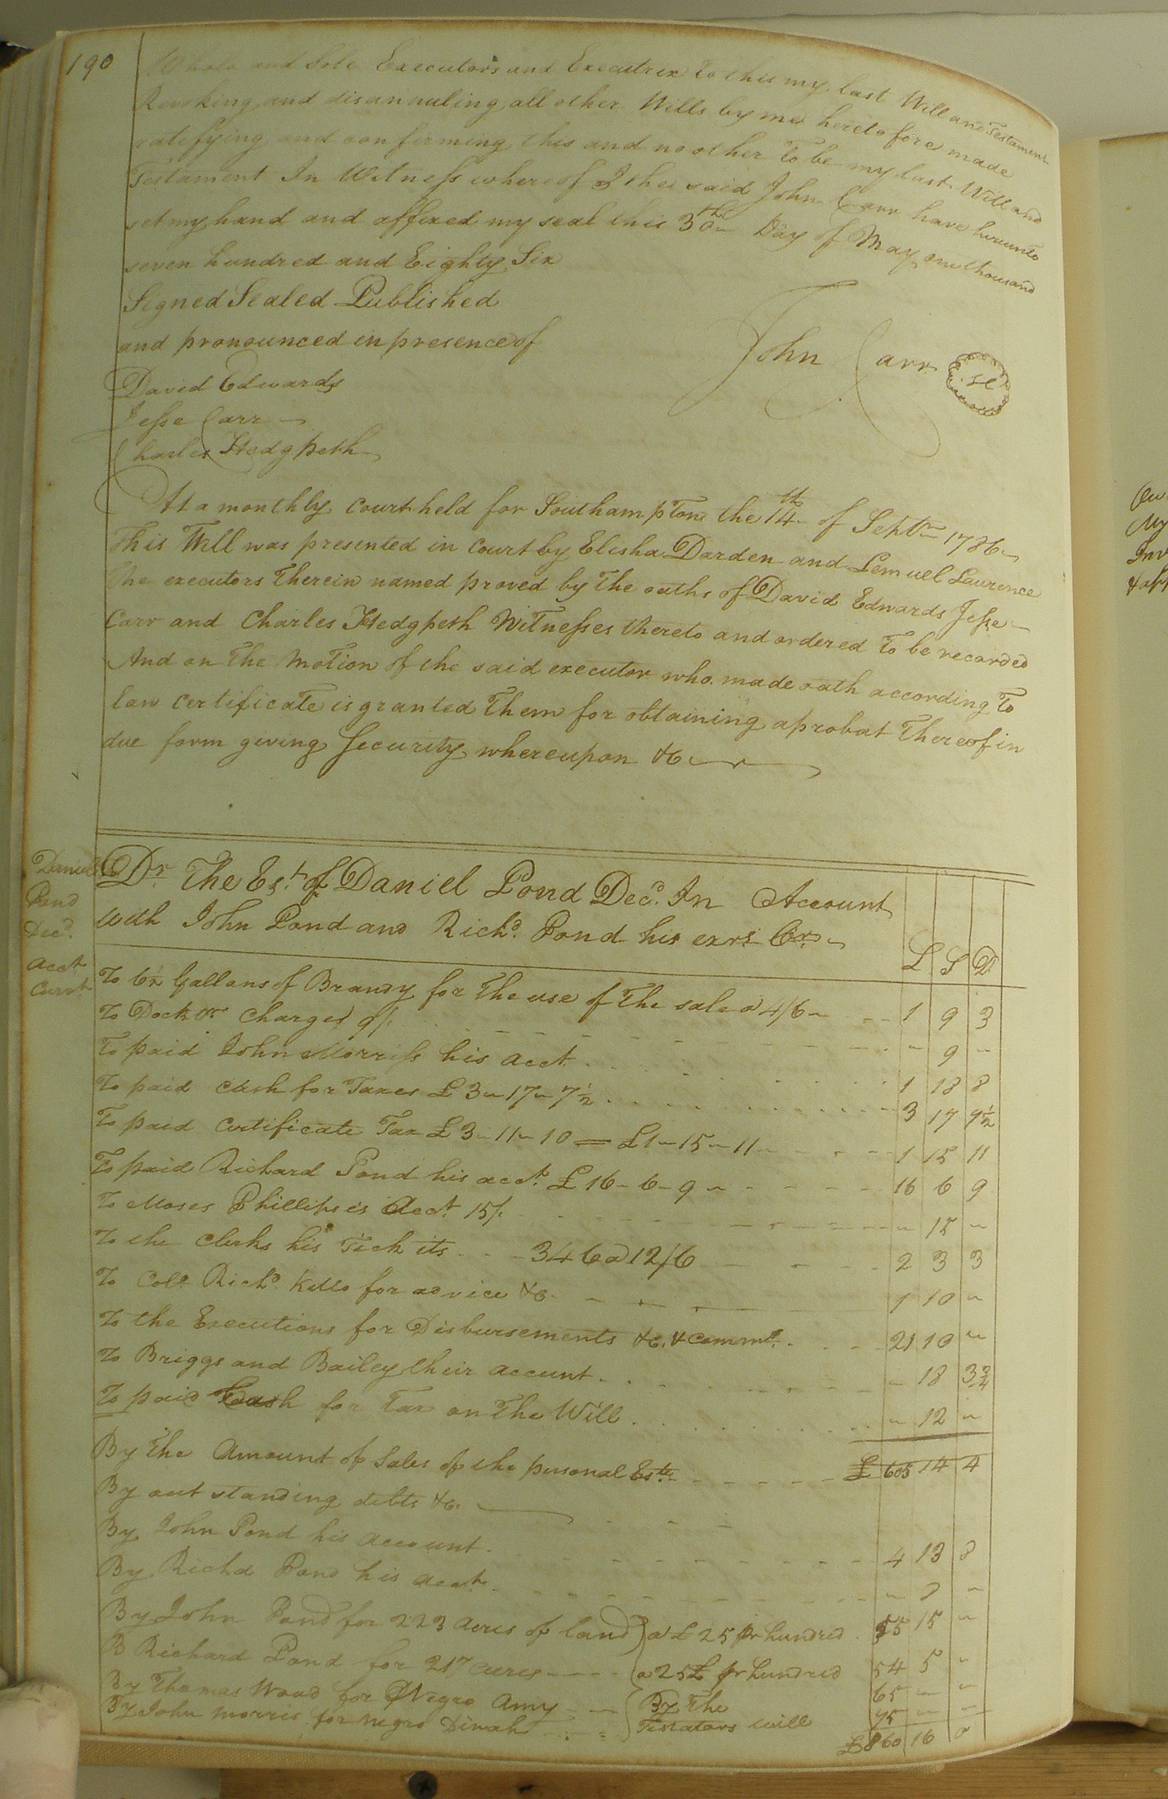 190
Whole and Sole Executors and Executrix to this my last Will and Testament
Revoking and disannuling all other Wills by me heretofore made
ratifying and confirming this and no other to be my last Will and
Testament In Witness whereof I the said John Carr have hereunto
set my hand and affixed my seal this 30th Day of May one thousand
seven hundred and Eighty Six
Signed Sealed Published
and pronounced in presence of
John Carr
David Edwards
Jesse Carr
Charles Hedgpeth
At a monthly court held for Southampton the 14th of Septr 1786
This Will was presented in court by Elisha Darden and Lemuel Laurence
the executors Therein named proved by the oaths of David Edwards Jesse
Carr and Charles Hedgpeth Witnesses thereto and ordered to be recorded
And on the motion of the said executor who made oath according to
law certificate is granted them for obtaining a probat Thereof in
due form giving security whereupon &c
Daniel
Pond
Decd.
acct
Currt
Dr. The Est. of Daniel Pond Decd. In Account
with John Pond and Richd. Pond his exrs. Cr. £ S D
To 6½ Gallons of Brandy for the use of the sale a 4/6 1 9 3
To Docktor Charges 9/ 9
To paid John Morriss his acct 1 18 8
To paid cash for Taxes £3-17-7½ 3 17 7½
To paid certificate Tax £3-11-10 = £1-15-11 1 15 11
To paid Richard Pond his acct. £16-6-9 16 6 9
To Moses Phillips is Acct. 15/ 15
To the Clerks his Tickets 346 a 12/6 2 3 3
To Colo. Richd. Kello for advice &c 1 10
To the Executions for Disbursements &c. & Comms. 21 10
To Briggs and Bailey their account 18 3¾
To paid Cash for Tax on the Will 12
By the Amount of Sales of the personal Este £ 605 14 4
By out standing debts &c.
By John Pond his account 4 13 8
By Richd Pond his acct. 7
By John Pond for 223 acres of land a £25 pr hundred 55 15
B Richard Pond for 217 acres a 25£ pr hundred 54 5
By Thomas Wood for Negro Amy By The 65
By John Morris for negro Dinah Testators will 75
£860 16 0